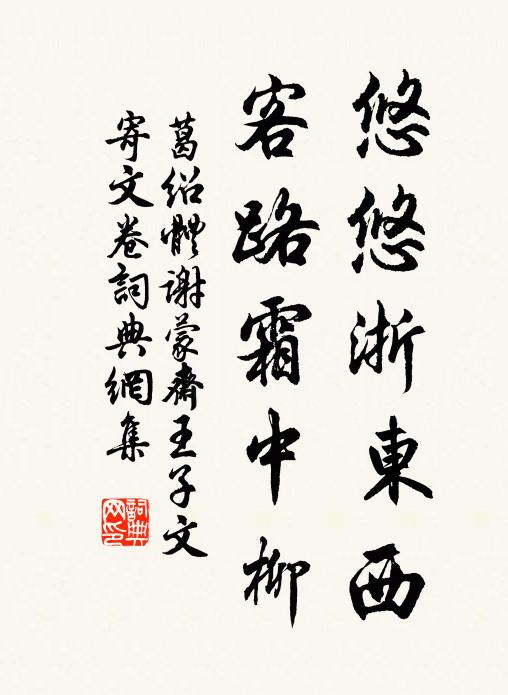 悠悠浙東西
客路霜中柳
葛绍體謝蒙齋王子文
寄文卷詞典網集
詞典
网印